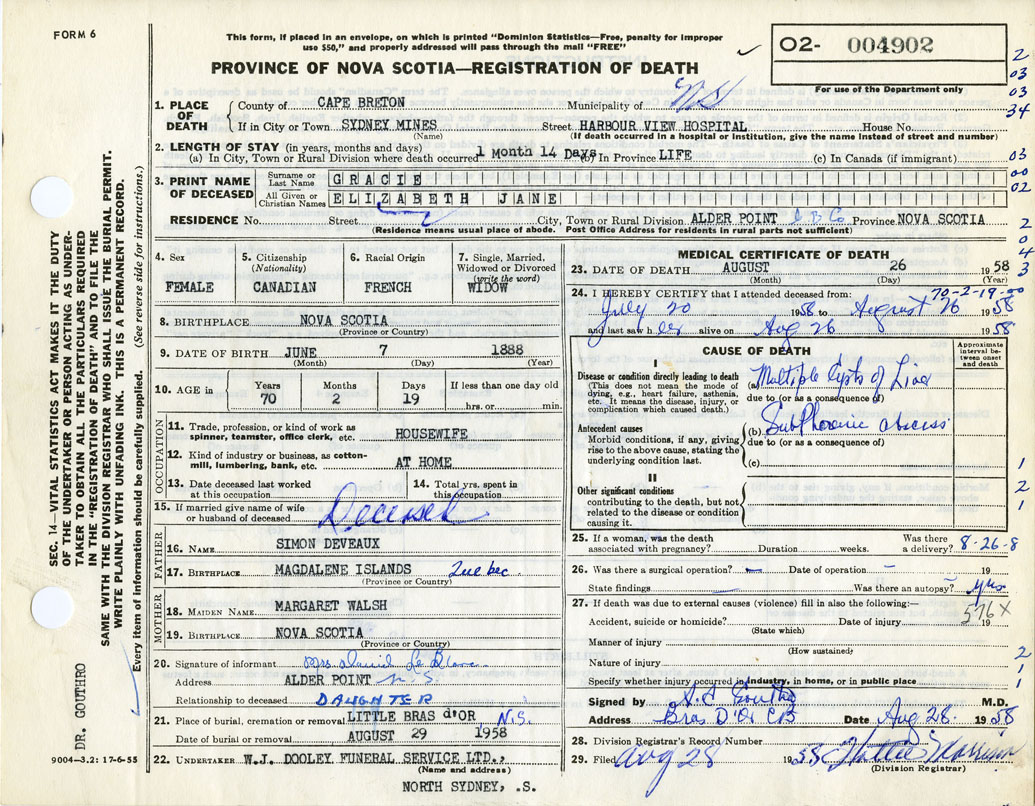 FORM 6
This form, if placed in an envelope, on which is printed "Dominion Statistics—Free, penalty for improper
use $50," and properly addressed will pass through the mail "FREE"
02- 004902
For use of the Department only
PROVINCE OF NOVA SCOTIA—REGISTRATION OF DEATH
2
03
03
34
03
00
02
2
0
4
3
1. PLACE OF DEATH County of CAPE BRETON Municipality of NS
If in City or Town SYDNEY MINES Street HARBOUR VIEW HOSPITAL House No.
(Name) (If death occurred in a hospital or institution, give the name instead of street and number)
2. LENGTH OF STAY (in years, months and days)
(a) In City, Town or Rural Division where death occurred 1 Month 14 Days (b) In Province LIFE (c) In Canada (if immigrant)
3. PRINT NAME OF DECEASED Surname or Last Name GRACIE
All Given or Christian Names ELIZABETH JANE
RESIDENCE No. Street City, Town or Rural Division ALDER POINT C B Co Province NOVA SCOTIA
(Residence means usual place of abode. Post Office Address for residents in rural parts not sufficient)
4. Sex FEMALE
5. Citizenship (Nationality) CANADIAN
6. Racial Origin FRENCH
7. Single, Married, Widowed or Divorced (write the word) WIDOW
8. BIRTHPLACE NOVA SCOTIA
(Province or Country)
9. DATE OF BIRTH JUNE 7 1888
(Month) (Day) (Year)
10. AGE in Years 70 Months 2 Days 19 If less than one day old hrs. or min.
OCCUPATION
11. Trade, profession, or kind of work as spinner, teamster, office clerk, etc. HOUSEWIFE
12. Kind of industry or business, as cotton-mill, lumbering, bank, etc. AT HOME
13. Date deceased last worked at this occupation 14. Total yrs. spent in this occupation
15. If married give name of wife or husband of deceased Deceased
FATHER
16. NAME SIMON DEVEAUX
17. BIRTHPLACE MAGDALENE ISLANDS Quebec
(Province or Country)
MOTHER
18. MAIDEN NAME MARGARET WALSH
19. BIRTHPLACE NOVA SCOTIA
(Province or Country)
20. Signature of informant Mrs. Daniel Le Blanc
Address ALDER POINT N.S.
Relationship to deceased DAUGHTER
21. Place of burial, cremation or removal LITTLE BRAS d'OR N.S.
Date of burial or removal AUGUST 29 1958
22. UNDERTAKER W.J. DOOLEY FUNERAL SERVICE LTD.,
(Name and address)
NORTH SYDNEY, .S.
MEDICAL CERTIFICATE OF DEATH
23. DATE OF DEATH AUGUST 26 1958
(Month) (Day) (Year)
70-2-19-00
24. I HEREBY CERTIFY that I attended deceased from:
July 20 1958 to August 26 1958
and last saw her alive on Aug 26 1958
CAUSE OF DEATH
Approximate interval between onset and death
I
Disease or condition directly leading to death
(This does not mean the mode of dying, e.g., heart failure, asthenia, etc. It means the disease, injury, or complication which caused death.)
(a) Multiple Cysts of Liver
due to (or as a consequence of)
Antecedent causes
Morbid conditions, if any, giving rise to the above cause, stating the underlying condition last.
(b) Subphrenic abscess
due to (or as a consequence of)
(c)
II
Other significant conditions
contributing to the death, but not related to the disease or condition causing it.
1
2
1
25. If a woman, was the death associated with pregnancy? Duration weeks. Was there a delivery? 8-26-8
26. Was there a surgical operation? Date of operation 19
State findings Was there an autopsy? yes
27. If death was due to external causes (violence) fill in also the following:— 576X
Accident, suicide or homicide? Date of injury 19
(State which)
Manner of injury
(How sustained)
Nature of injury
Specify whether injury occurred in industry, in home, or in public place
2
1
1
Signed by M.D.
Address Bras D'Or CB Date Aug 28. 1958
28. Division Registrar's Record Number
29. Filed Aug 28 1958
(Division Registrar)
SEC. 14—VITAL STATISTICS ACT MAKES IT THE DUTY
OF THE UNDERTAKER OR PERSON ACTING AS UNDER-
TAKER TO OBTAIN ALL THE PARTICULARS REQUIRED
IN THE "REGISTRATION OF DEATH" AND TO FILE THE
SAME WITH THE DIVISION REGISTRAR WHO SHALL ISSUE THE BURIAL PERMIT.
WRITE PLAINLY WITH UNFADING INK. THIS IS A PERMANENT RECORD.
Every item of information should be carefully supplied. (See reverse side for instructions.)
DR. GOUTHRO
9004—3.2: 17-6-55